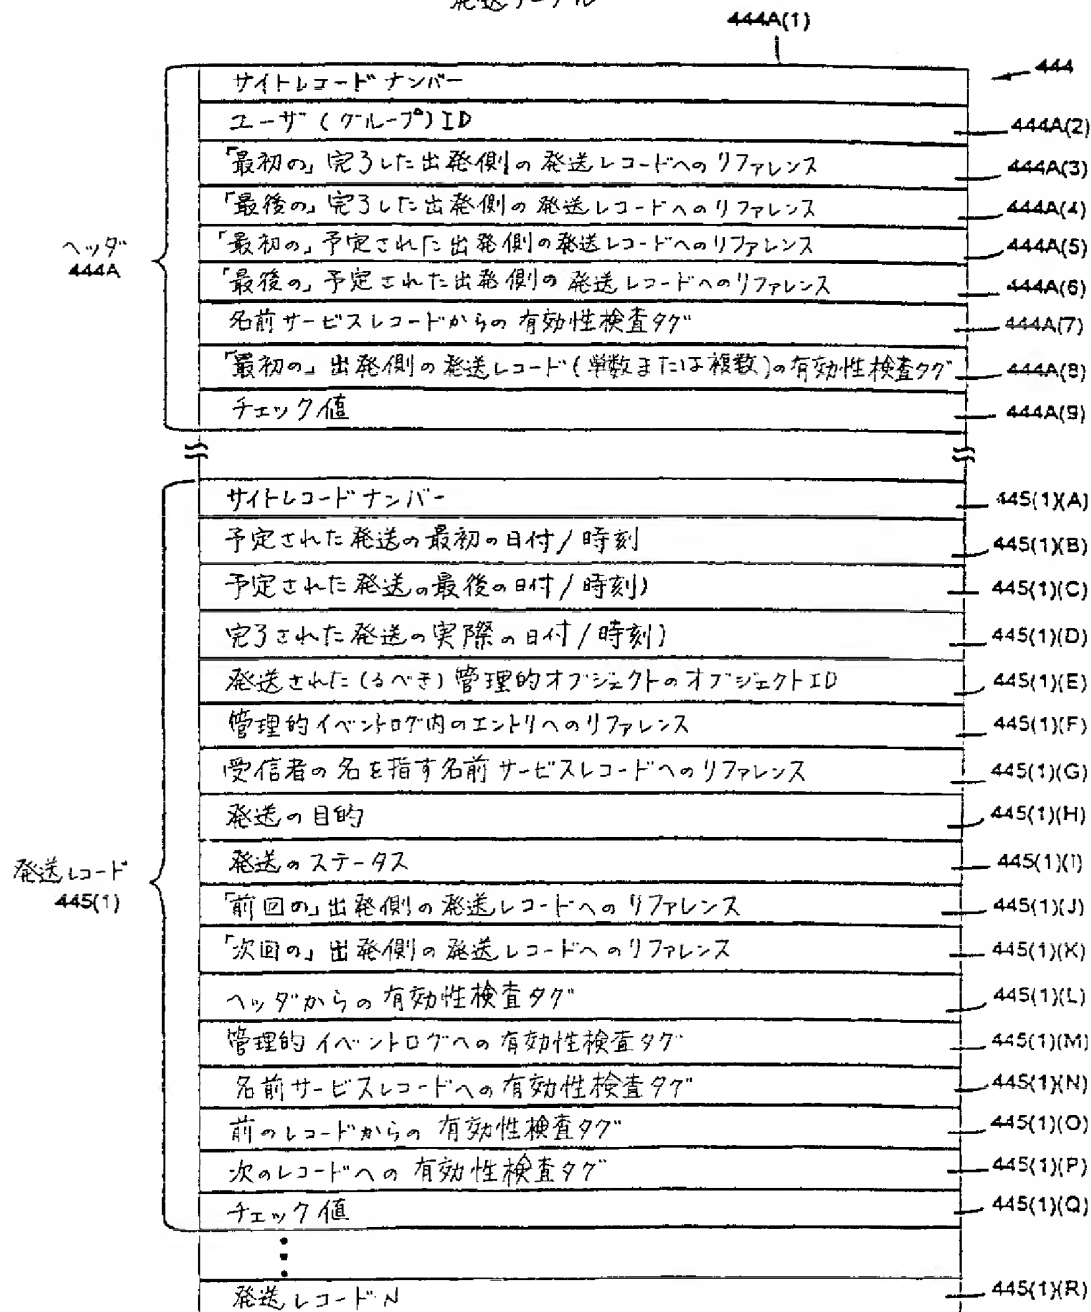 発送テーブル
444A(1)
444
サイトレコードナンバー
ユーザ(グループ)ID
444A(2)
「最初の」完了した出発側の発送レコードへのリファレンス
444A(3)
「最後の」完了した出発側の発送レコードへのリファレンス
444A(4)
「最初の」予定された出発側の発送レコードへのリファレンス
444A(5)
「最後の」予定された出発側の発送レコードへのリファレンス
444A(6)
名前サービスレコードからの有効性検査タグ
444A(7)
「最初の」出発側の発送レコード(単数または複数)の有効性検査タグ
444A(8)
チェック値
444A(9)
ヘッダ
444A
サイトレコードナンバー
445(1)(A)
予定された発送の最初の日付/時刻
445(1)(B)
予定された発送の最後の日付/時刻)
445(1)(C)
完了された発送の実際の日付/時刻)
445(1)(D)
発送された(るべき)管理的オブジェクトのオブジェクトID
445(1)(E)
管理的イベントログ内のエントリへのリファレンス
445(1)(F)
受信者の名を指す名前サービスレコードへのリファレンス
445(1)(G)
発送の目的
445(1)(H)
発送のステータス
445(1)(I)
「前回の」出発側の発送レコードへのリファレンス
445(1)(J)
「次回の」出発側の発送レコードへのリファレンス
445(1)(K)
ヘッダからの有効性検査タグ
445(1)(L)
管理的イベントログへの有効性検査タグ
445(1)(M)
名前サービスレコードへの有効性検査タグ
445(1)(N)
前のレコードからの有効性検査タグ
445(1)(O)
次のレコードへの有効性検査タグ
445(1)(P)
チェック値
445(1)(Q)
発送レコード
445(1)
発送レコードN
445(1)(R)